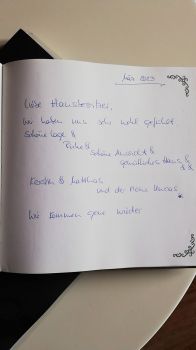 Mai 2023
Liebe Hausbesitzer,
wir haben uns sehr wohl gefühlt
Schöne Lage &
Ruhe &
Schöne Aussicht &
gemütliches Haus &
Kerstin & Matthias
und der kleine
Wir kommen gerne wieder